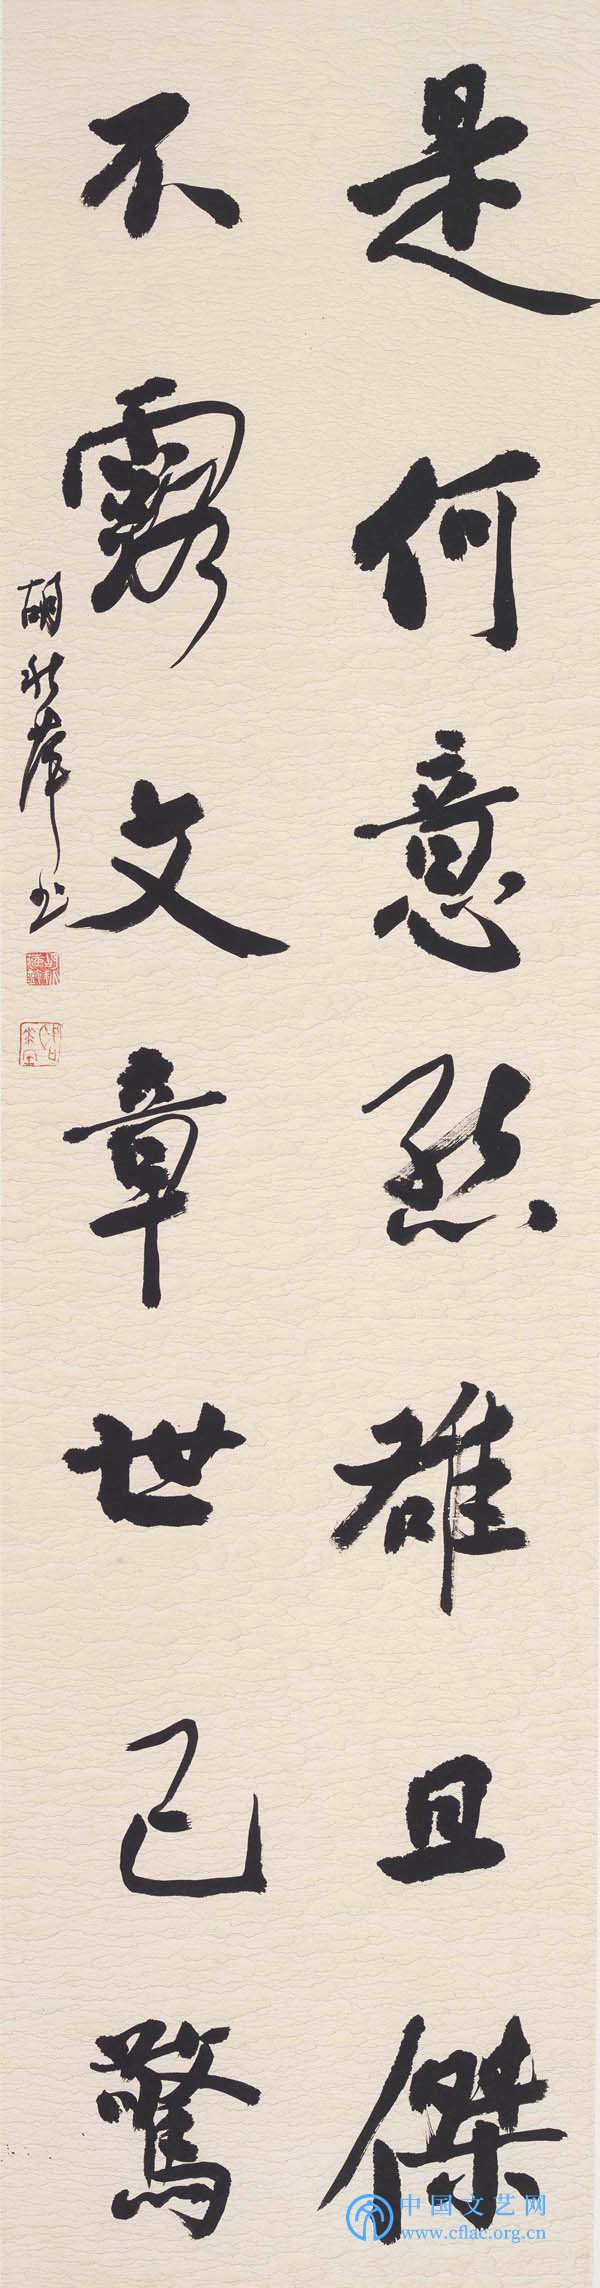 是何意态雄且傑
不露文章世已驚
胡秋萍书
中国文艺网
www.cflac.org.cn